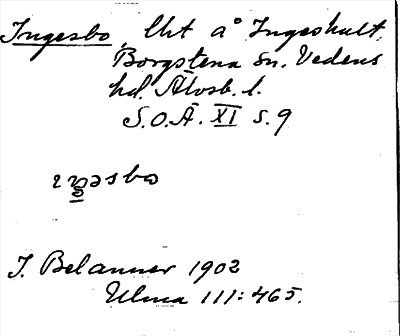 Ingesbo, lht å Ingeshult,
Borgstena sn. Vedens
hd. Älvsb. l.
S.O.Ä. XI s. 9
J. Belanner 1902
Ulma 111:465.